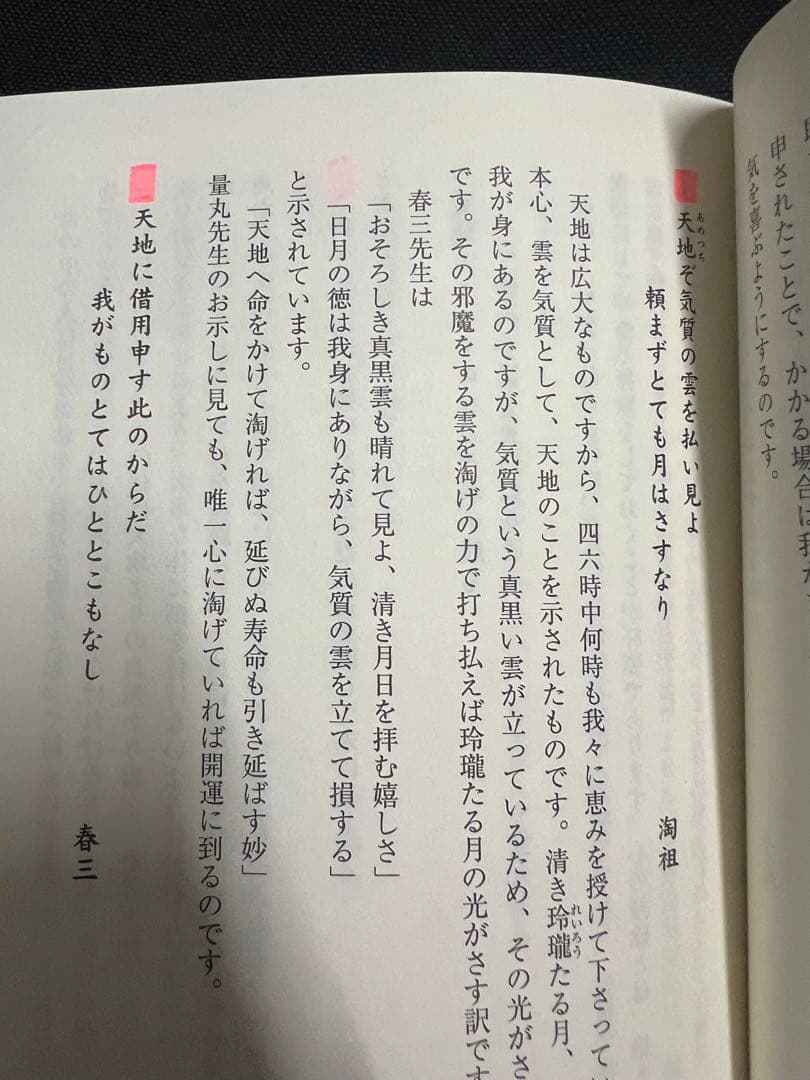 申されたことで、かかる場合は我が
気を喜ぶようにするのです。
天地ぞ気質の雲を払い見よ
あめつち
頼まずとても月はさすなり
淘祖
天地は広大なものですから、四六時中何時も我々に恵みを授けて下さって
本心、雲を気質として、天地のことを示されたものです。清き玲瓏たる月、
れいろう
我が身にあるのですが、気質という真黒い雲が立っているため、その光がさ
です。その邪魔をする雲を淘げの力で打ち払えば玲瓏たる月の光がさす訳です
春三先生は
「おそろしき真黒雲も晴れて見よ、清き月日を拝む嬉しさ」
「日月の徳は我身にありながら、気質の雲を立てて損する」
と示されています。
「天地へ命をかけて淘げれば、延びぬ寿命も引き延ばす妙」
量丸先生のお示しに見ても、唯一心に淘げていれば開運に到るのです。
天地に借用申す此のからだ
我がものとてはひととこもなし
春三